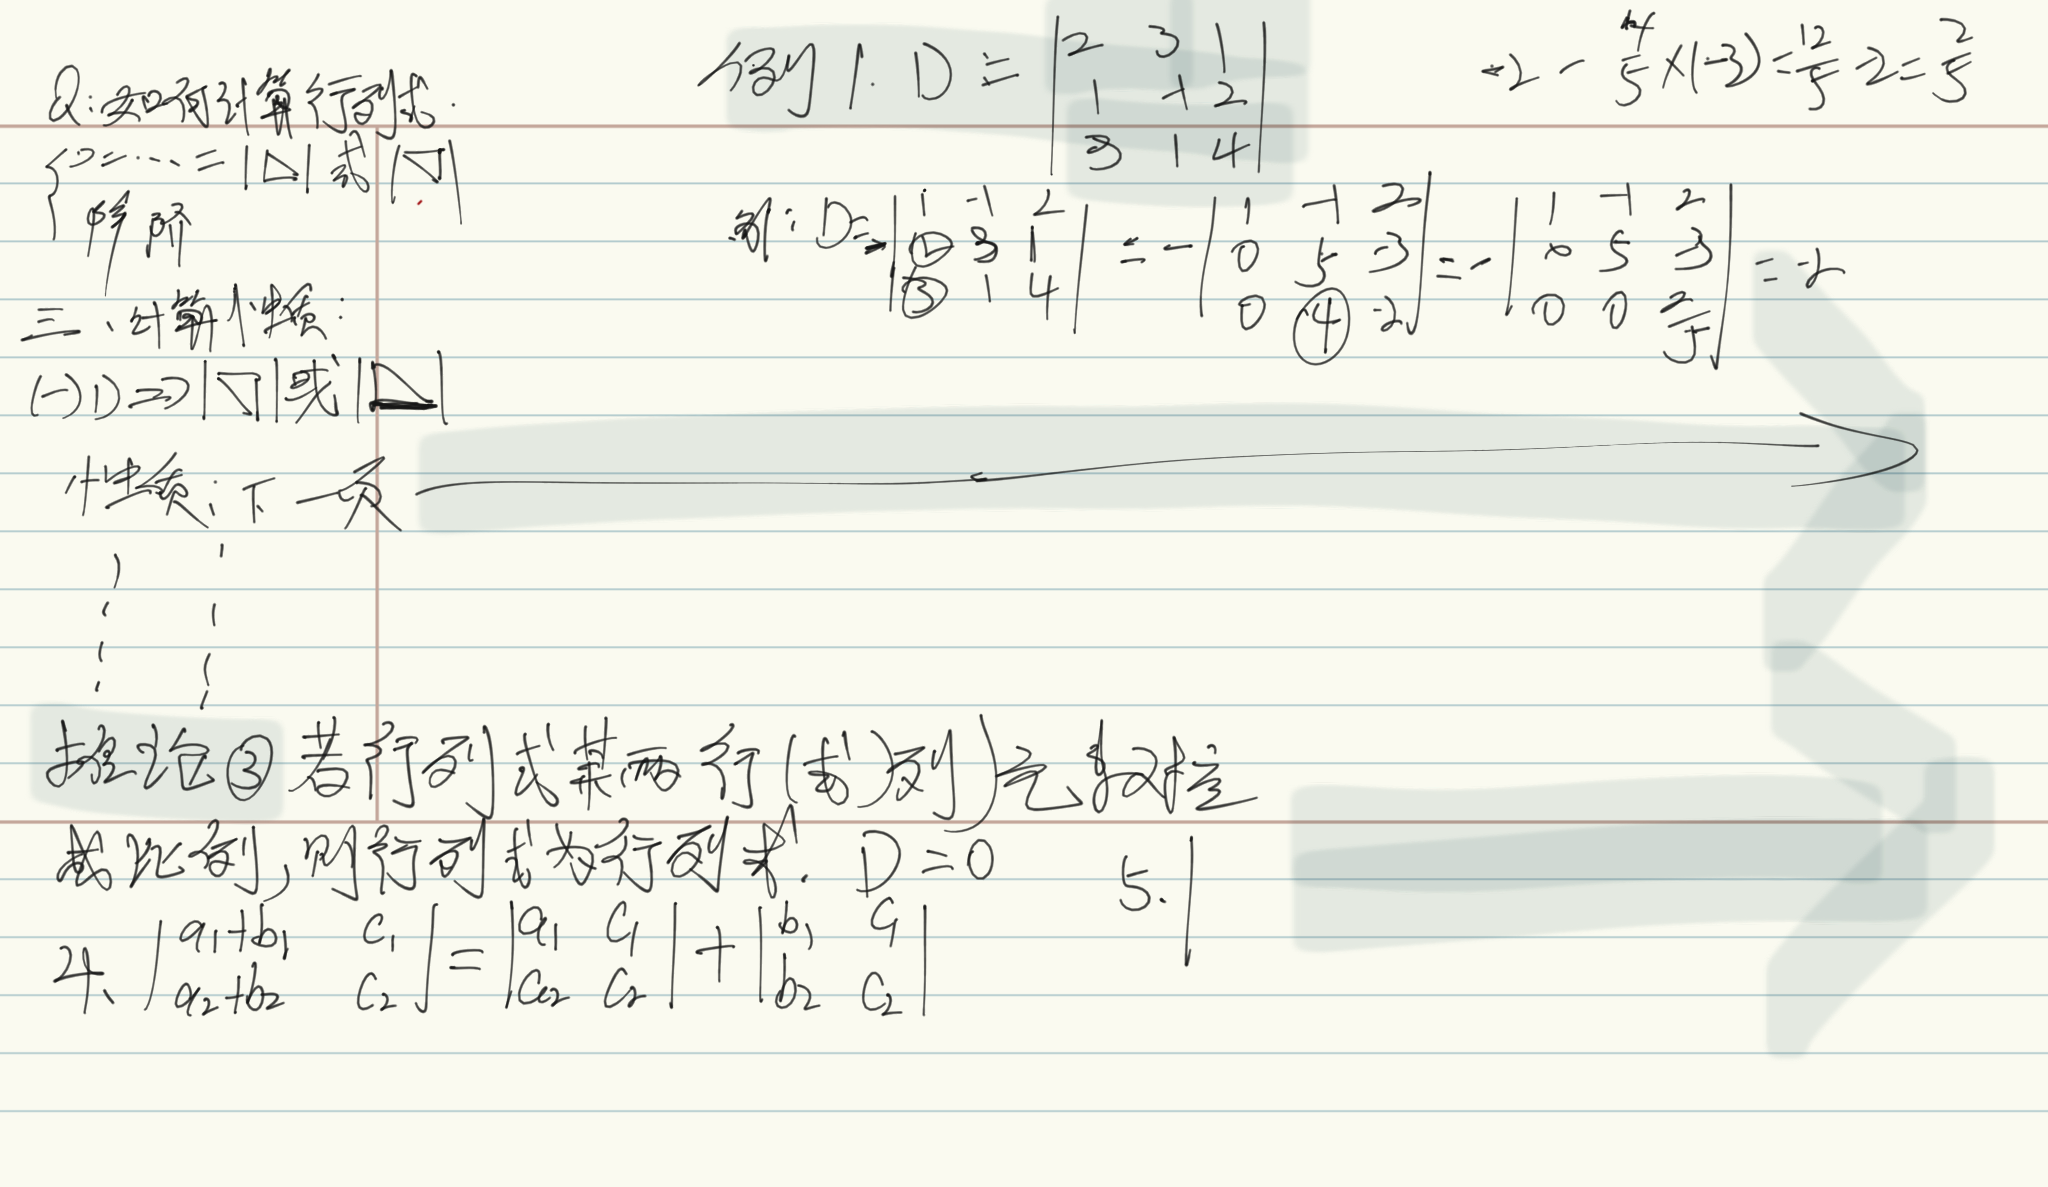 Q:如何计算行列式.
D=…=|◺|或|◹|
降阶
三、计算小性质:
(一)D=>|◹|或|◺|
性质:下一页
例1. D=
|2 3 1|
|1 -1 2|
|3 1 4|
-2-4/5×(-3)=12/5-2=2/5
解:D=-
|1 -1 2|
|2 3 1|
|3 1 4|
=-
|1 -1 2|
|0 5 -3|
|0 4 -2|
=-
|1 -1 2|
|0 5 -3|
|0 0 2/5|
=-2
推论③若行列式某两行(或)列)元数
或比例,则行列式为行列式. D=0
4、
|a₁+b₁ c₁|
|a₂+b₂ c₂|
=
|a₁ c₁|
|a₂ c₂|
+
|b₁ c₁|
|b₂ c₂|
5.|